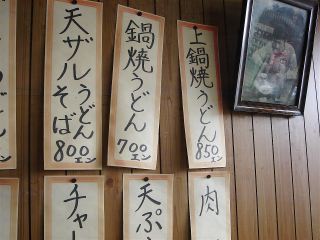 上鍋焼うどん
850エン
鍋焼うどん
700エン
天ザルうどん
そば
800エン
肉
天ぷ
チャー